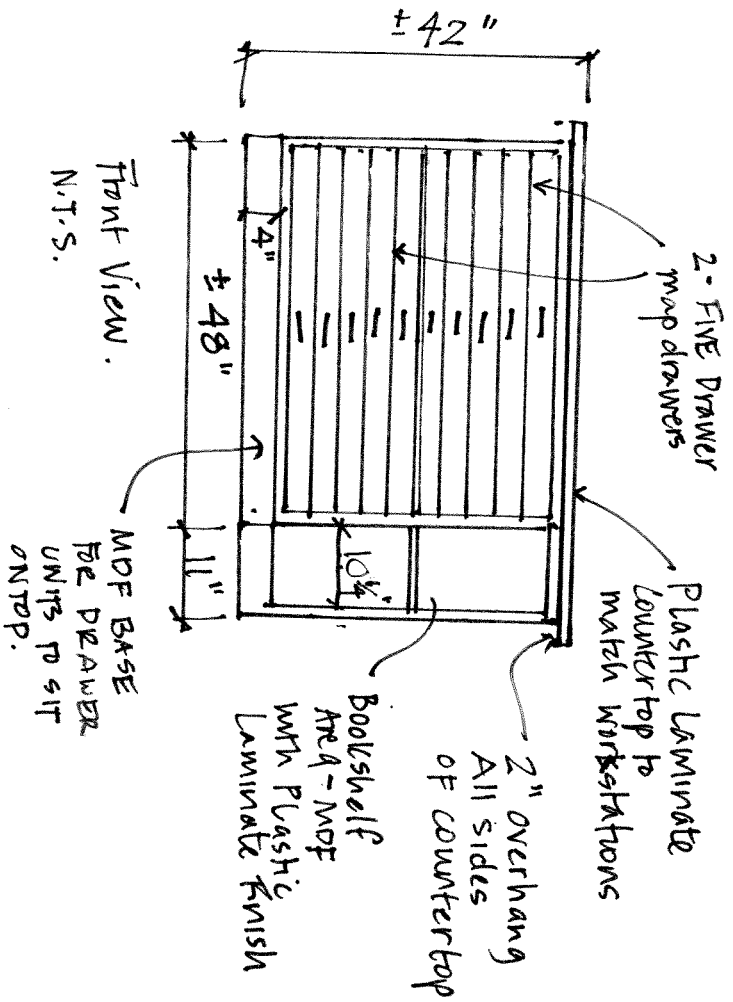 2- FIVE Drawer
map drawers
Plastic Laminate
Countertop to
match workstations
2" overhang
All sides
of countertop
Bookshelf
Area - MDF
with Plastic
Laminate Finish
± 42"
4"
10 1/4"
± 48"
11"
MDF BASE
FOR DRAWER
UNITS TO SIT
ON TOP.
Front View.
N.T.S.